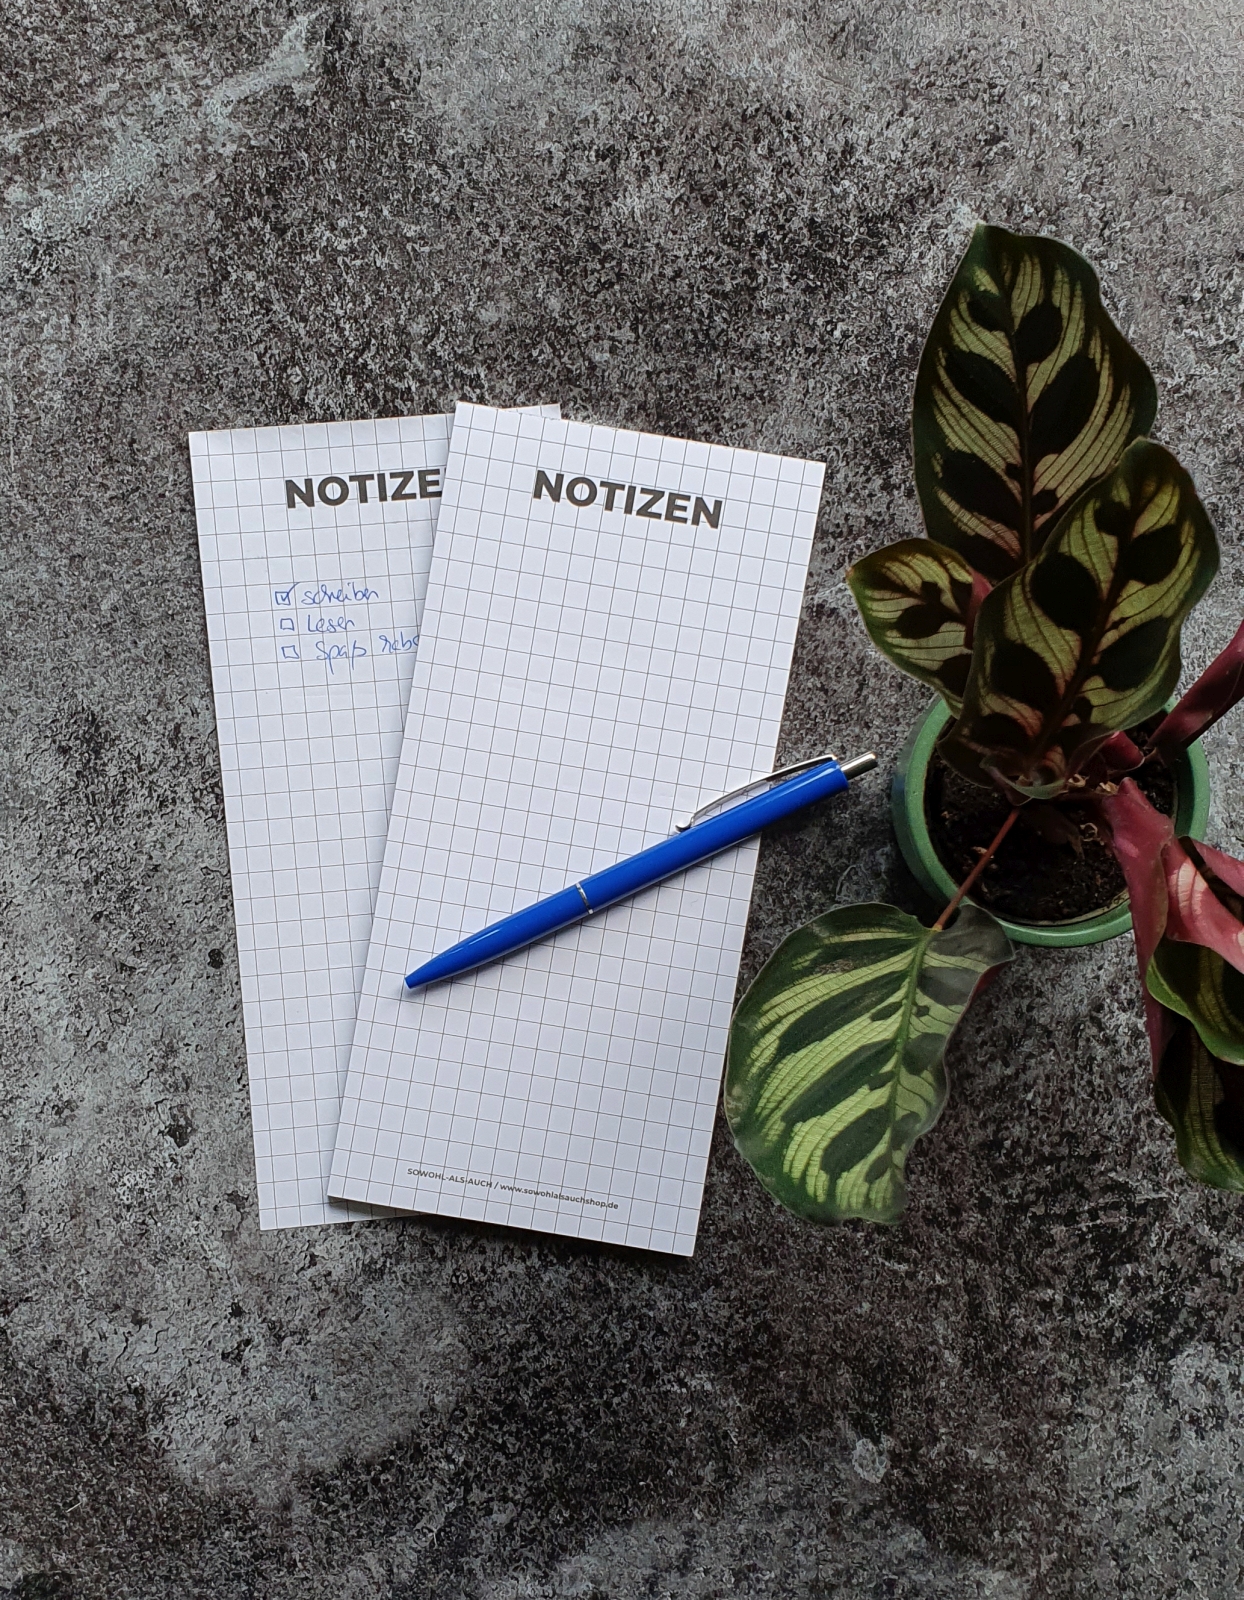 NOTIZE
☑ schreiben
☐ Lesen
☐ Spaß habe
NOTIZEN
SOWOHL-ALS-AUCH / www.sowohlalsauchshop.de